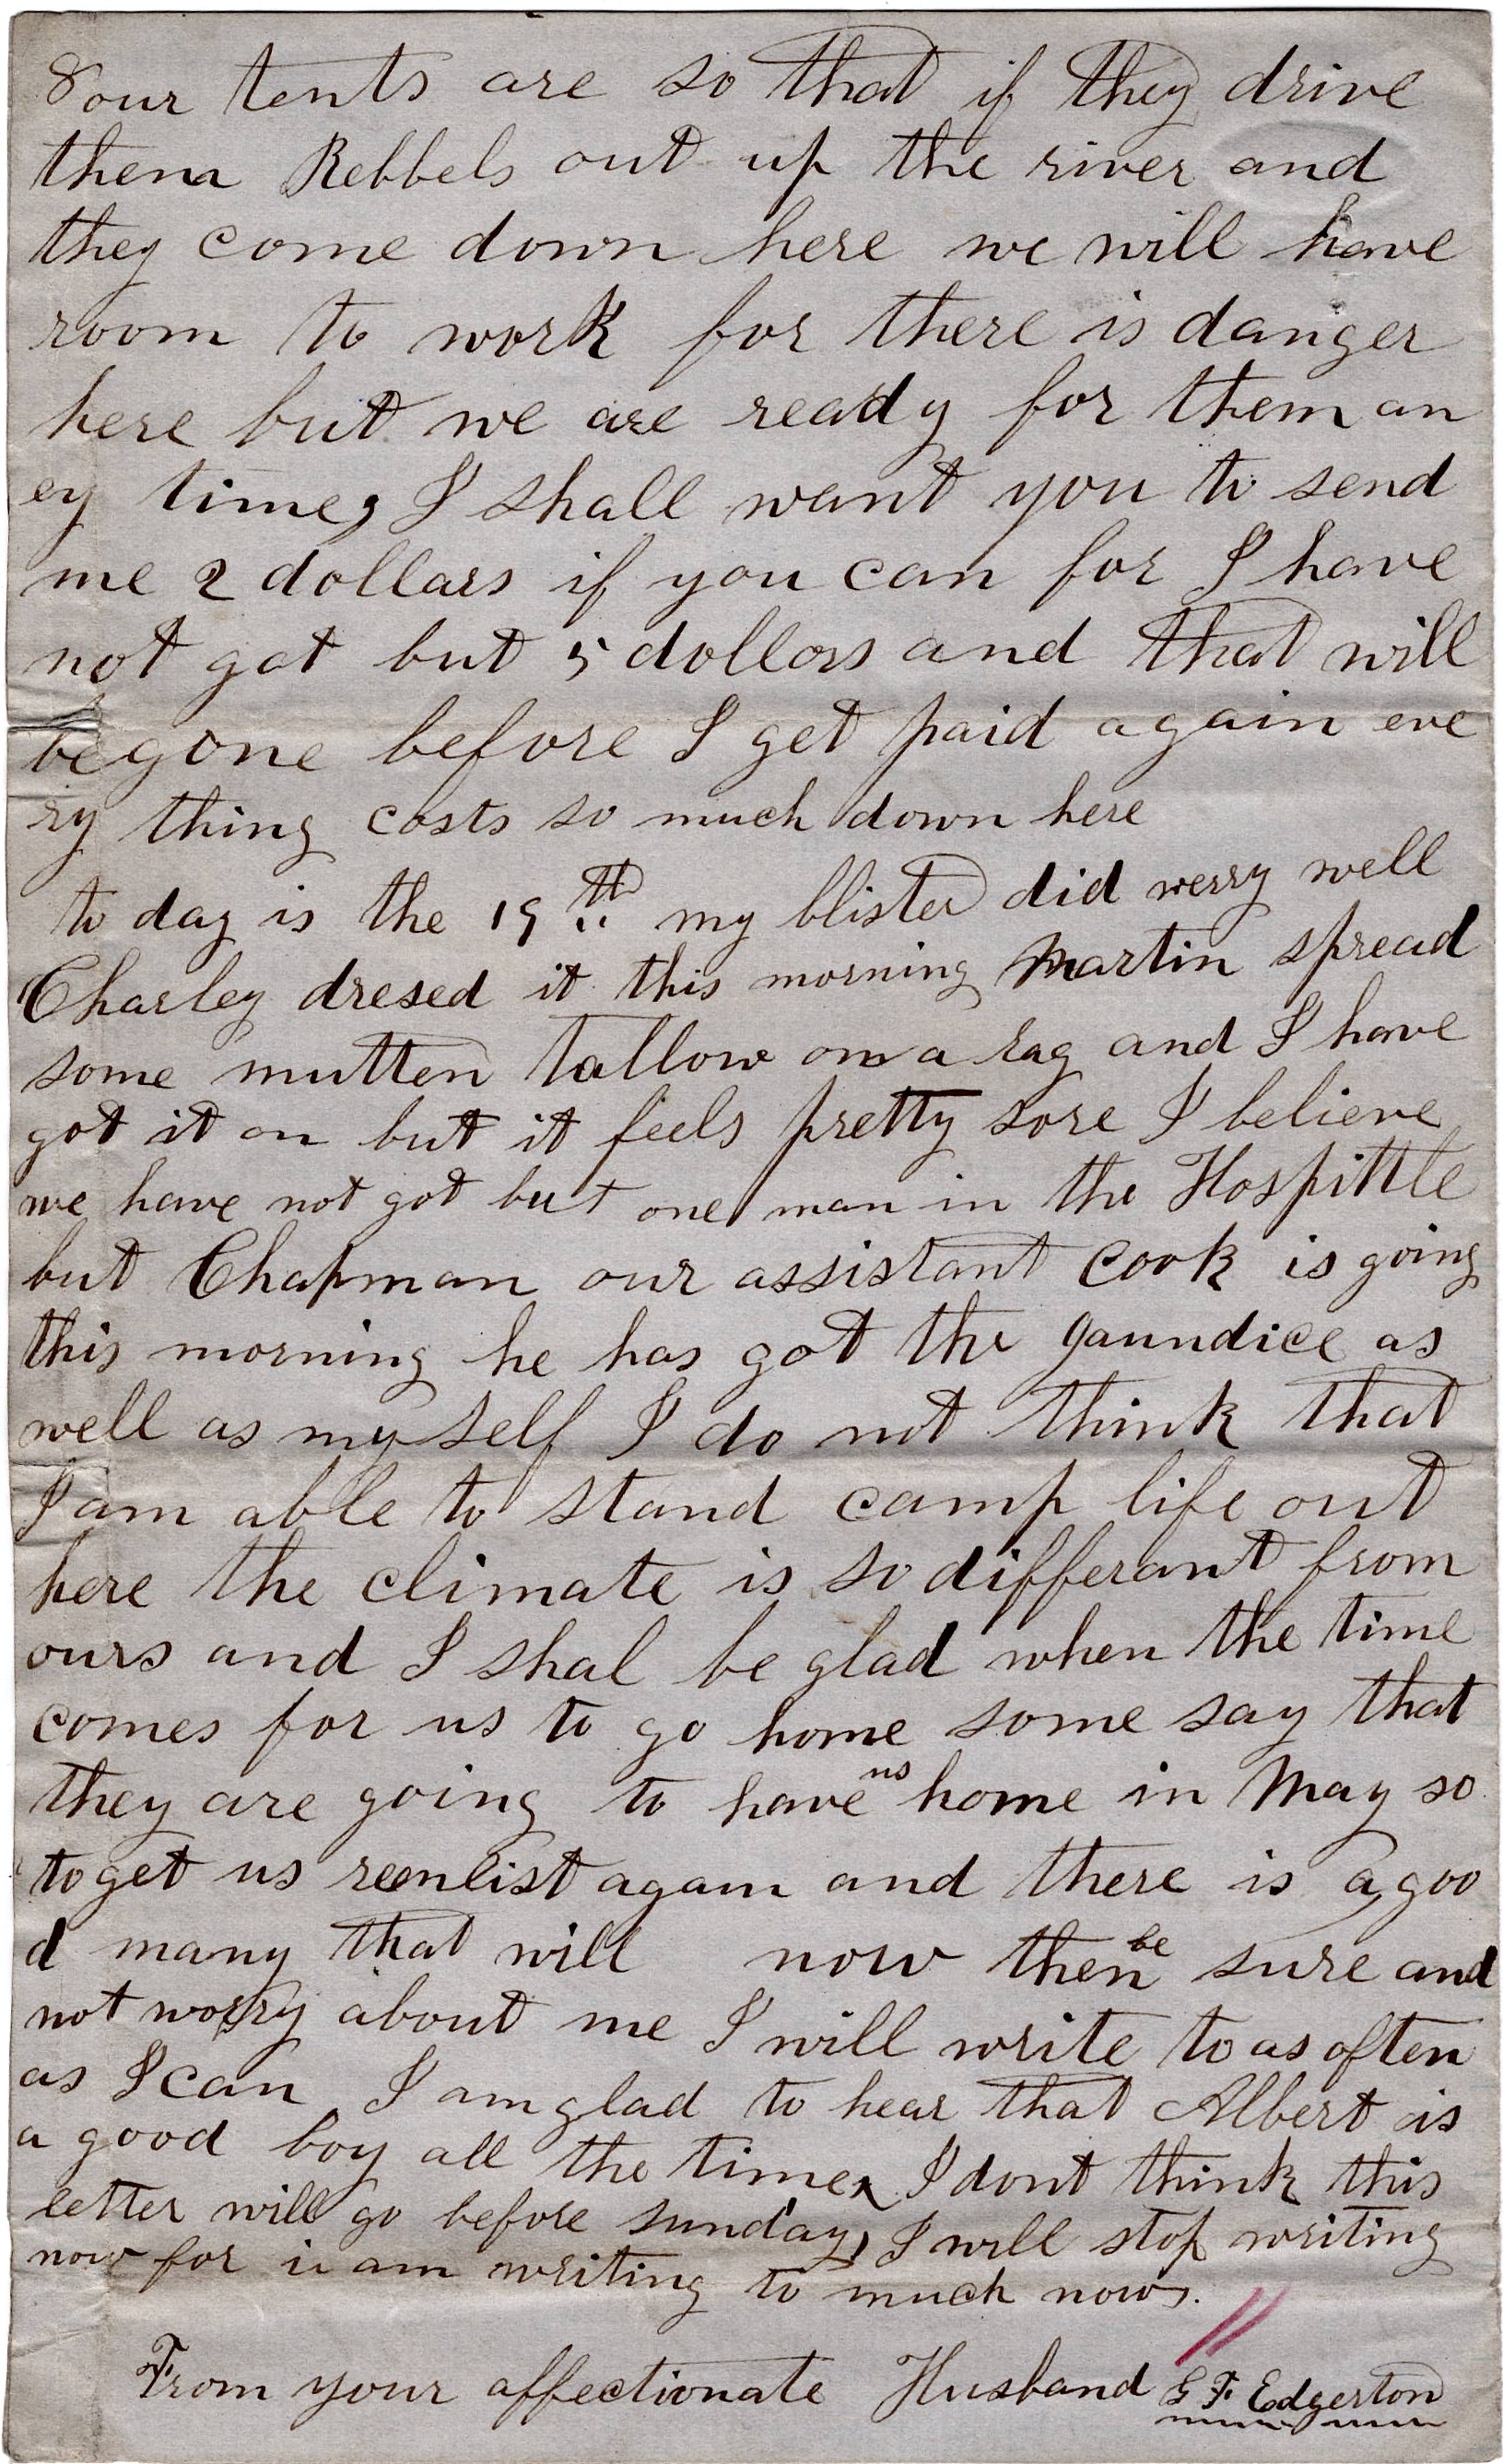 & our tents are so that if they drive
them Rebbels out up the river and
they come down here we will have
room to work for there is danger
here but we are ready for them an
ey time, I shall want you to send
me 2 dollars if you can for I have
not got but 5 dollars and that will
be gone before I get paid again eve
ry thing costs so much down here
to day is the 19th my blister did verry well
Charley dresed it this morning Martin spread
some mutten tallow on a rag and I have
got it on but it feels pretty sore I believe
we have not got but one man in the Hospittle
but Chapman our assistant Cook is going
this morning he has got the Jaundice as
well as my self I do not think that
I am able to stand camp life out
here the climate is so differant from
ours and I shal be glad when the time
comes for us to go home some say that
they are going to have us home in May so
to get us reenlist again and there is a goo
d many that will now then be sure and
not worry about me I will write to as often
as I can I am glad to hear that Albert is
a good boy all the time, I dont think this
letter will go before sunday, I will stop writing
now for i am writing to much now.
From your affectionate Husband G F Edgerton